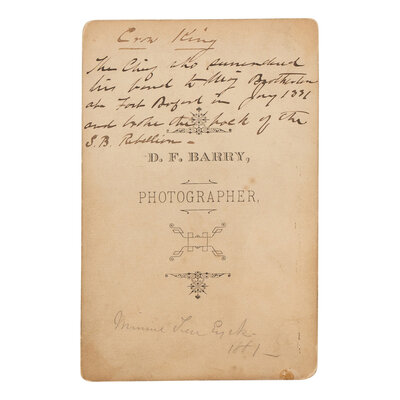 Crow King
The Chief who surrendered
his band to Maj Brotherton
at Fort Buford in Jany 1881
and broke the back of the
S.B. Rebellion -
D. F. BARRY,
PHOTOGRAPHER.
Minnie Ten Eyck
1881